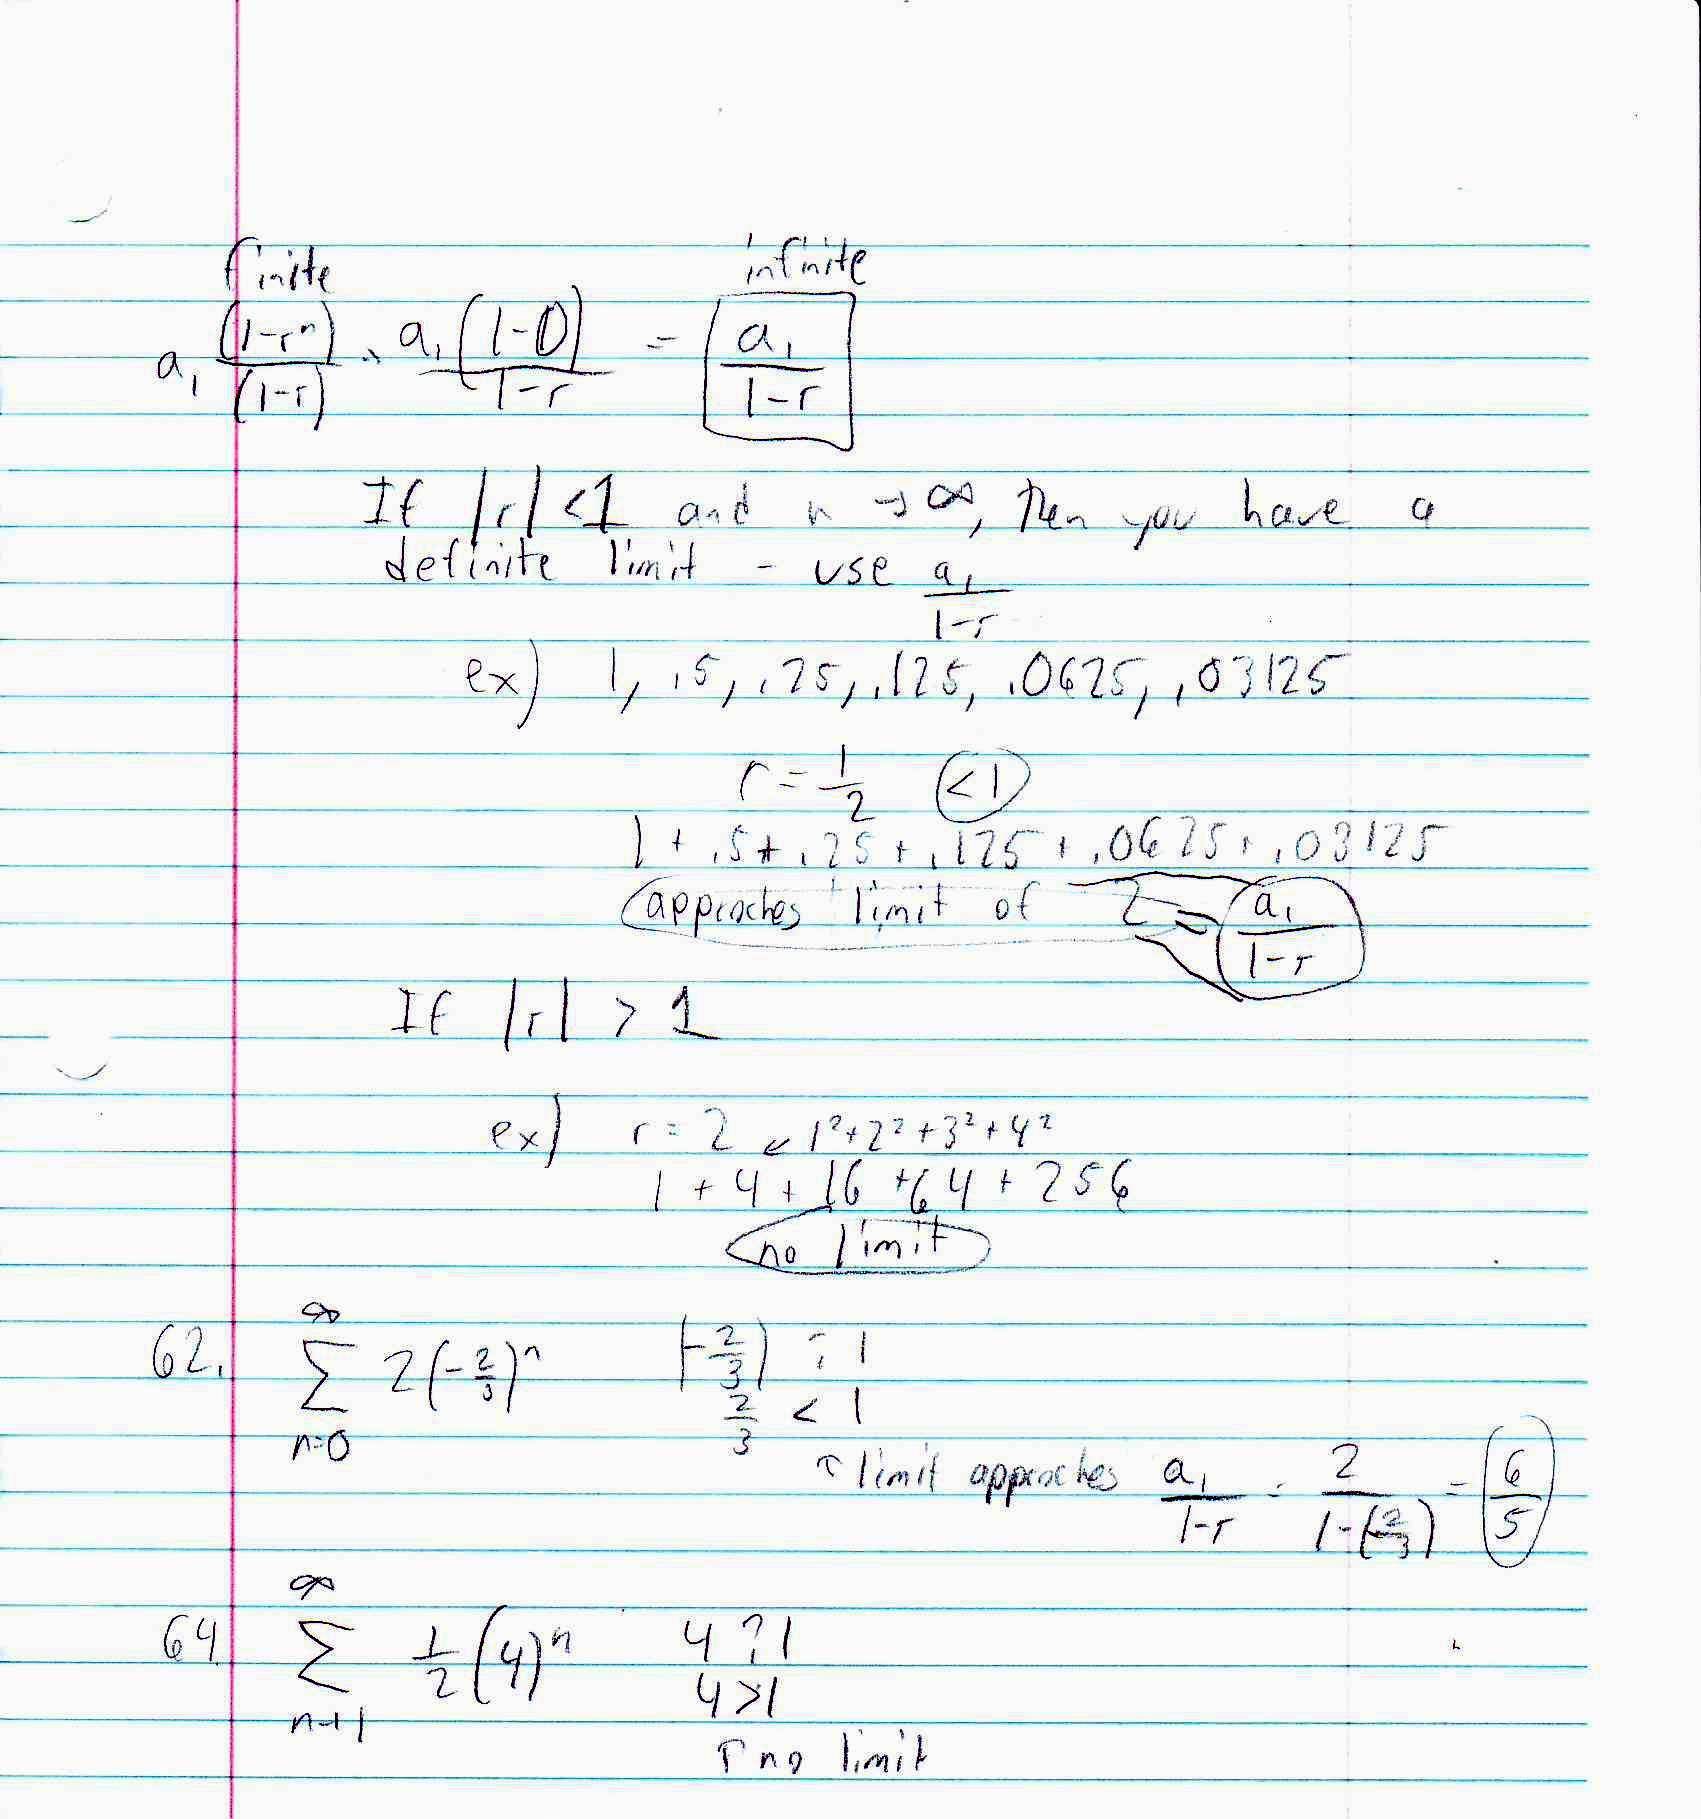 finite infinite
a₁ (1-rⁿ)/(1-r) → a₁(1-0)/1-r = a₁/1-r
If |r| <1 and n → ∞, then you have a
definite limit - use a₁/1-r
ex) 1, .5, .25, .125, .0625, .03125
r = 1/2 <1
1 + .5 + .25 + .125 + .0625 + .03125
approches limit of 2 = a₁/1-r
If |r| > 1
ex) r = 2 ↙ 1²+2²+3²+4²
1 + 4 + 16 + 64 + 256
no limit
62. ∞ Σ n=0 2(-2/3)ⁿ |-2/3| ? 1
2/3 < 1
↑ limit approches a₁/1-r = 2/1-(-2/3) = 6/5
64. ∞ Σ n=1 1/2 (4)ⁿ 4 ? 1
4 > 1
↑ no limit